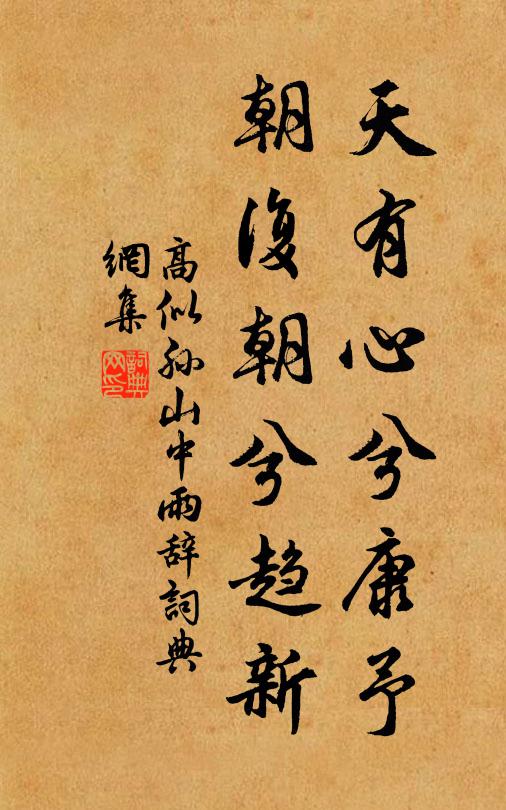 天有心兮康予
朝復朝兮趋新
高似孙山中雨辞詞典
網集
詞典网印